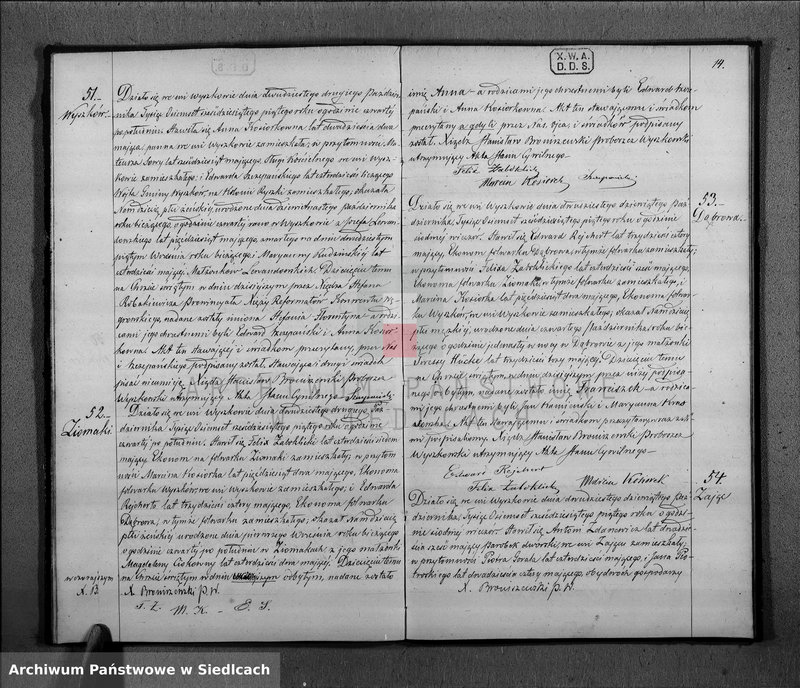 51.
Wyszków.
Działo się we wsi Wyszkowie dnia dwudziestego drugiego Paździer-
nika Tysiąc Ośmset sześćdziesiątego piątego roku o godzinie czwartej
po południu. Stawiła się Anna Kosiorkowna lat dwadzieścia dwa
mająca, panna we wsi Wyszkowie zamieszkała, w przytomności Ma-
teusza lat sześćdziesiąt mającego, Sługi Kościelnego we wsi Wysz-
kowie zamieszkałego, i Edwarda Szczepańskiego lat czterdzieści liczącego
Wójta Gminy Wyszków, na zamieszkałego, okazała
Nam dziecię płci żeńskiej, urodzone dnia dwunastego Października
roku bieżącego, o godzinie czwartej rano w Wyszkowie z Józefa Lewan-
dowskiego lat pięćdziesiąt mającego, zmarłego na dniu dwudziestym
piątym Września roku bieżącego i Maryanny lat
czterdzieści mającej, Małżonków Lewandowskich. Dziecięciu temu
na Chrzcie świętym w dniu dzisiejszym przez Księdza Stefana
Księży Reformatów Konwentu Wę-
growskiego, nadane zostały imiona Stefania Florentyna a rodzi-
cami jego chrzestnemi byli Edward Szczepański i Anna Kosior-
kowna. Akt ten stawającej i świadkom przeczytany, przez Nas
i Szczepańskiego podpisany został. Stawająca i drugi świadek
pisać nieumieją. Ksiądz Stanisław Broniszewski Proboszcz
Wyszkowski Utrzymujący Akta Stanu Cywilnego. Szczepański
52.
Ziomaki.
Działo się we wsi Wyszkowie dnia dwudziestego drugiego Paź-
dziernika Tysiąc Ośmset sześćdziesiątego piątego roku o godzinie
czwartej po południu. Stawił się Felix Załoklicki lat czterdzieści siedem
mający Ekonom na folwarku Ziomaki zamieszkały, w przytom-
ności Marcina Kosiorka lat pięćdziesiąt dwa mającego, Ekonoma
folwarku Wyszków we wsi Wyszkowie zamieszkałego, i Edwarda
Rejcherta lat trzydzieści cztery mającego, Ekonoma folwarku
Dąbrowa, w tymże folwarku zamieszkałego, okazał Nam dziecię
płci żeńskiej urodzone dnia pierwszego Września roku bieżącego
o godzinie czwartej po południu w Ziomakach, z jego małżonki
Magdaleny lat czterdzieści dwa mającej. Dziecięciu temu
w wczorajszym
N. 13
na Chrzcie świętym w dniu odbytym, nadane zostało
X. Broniszewski P. W.
F. Z. M. K. — E. S.
X.W.A.
D.D.S.
14.
imię Anna — a rodzicami jego chrzestnemi byli Edward Szcze-
pański i Anna Kosiorkowna. Akt ten stawającemu i świadkom
przeczytany a gdy i świadków podpisany
został. Ksiądz Stanisław Broniszewski Proboszcz Wyszkowski
Utrzymujący Akta Stanu Cywilnego.
Felix Załoklicki
Marcin Kosiorek Szczepański
53.
Dąbrowa.
Działo się we wsi Wyszkowie dnia dwudziestego dziewiątego Paź-
dziernika, Tysiąc Ośmset sześćdziesiątego piątego roku o godzinie
siódmej wieczór. Stawił się Edward Rejchert lat trzydzieści cztery
mający, Ekonom folwarku Dąbrowa, w tymże folwarku zamieszkały,
w przytomności Felixa Załoklickiego lat czterdzieści siedm mającego,
Ekonoma folwarku Ziomaki, w tymże folwarku zamieszkałego, i
Marcina Kosiorka lat pięćdziesiąt dwa mającego, Ekonoma folwar-
ku Wyszków, we wsi Wyszkowie zamieszkałego, okazał Nam dziecię
płci męzkiej, urodzone dnia czwartego Października roku bie-
żącego o godzinie jedenastej w nocy w Dąbrowie z jego małżonki
Teressy lat trzydzieści trzy mającej. Dziecięciu temu
na Chrzcie świętym w dniu dzisiejszym przez
odbytym, nadane zostało imię Franciszek — a rodzica-
mi jego chrzestnemi byli Jan i Maryanna
Akt ten stawającemu i świadkom przeczytany
podpisany. Ksiądz Stanisław Broniszewski Proboszcz
Wyszkowski Utrzymujący Akta Stanu Cywilnego.
Edward Rejchert
Felix Załoklicki Marcin Kosiorek
54.
Zając
Działo się we wsi Wyszkowie dnia dwudziestego dziewiątego Paź-
dziernika, Tysiąc Ośmset sześćdziesiątego piątego roku o godzi-
nie siódmej wieczór. Stawił się Antoni Zdanowicz lat dwadzie-
ścia sześć mający Parobek dworski, we wsi Zając zamieszkały,
w przytomności Piotra lat czterdzieści mającego, i Jana Pio-
trowskiego lat dwadzieścia cztery mającego, obydwóch gospodarzy
X. Broniszewski P. W.
ARCHIWUM PAŃSTWOWE
Archiwum Państwowe w Siedlcach